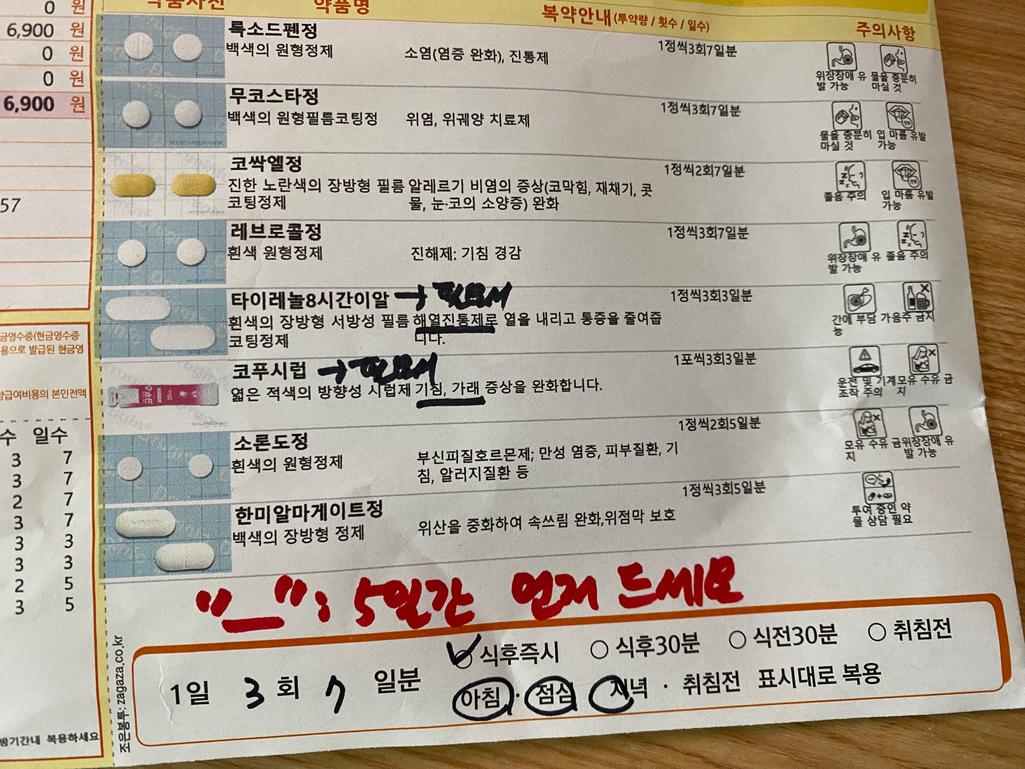 0 원
6,900 원
0 원
0 원
6,900 원
57
약품사진 약품명 복약안내(투약량 / 횟수 / 일수) 주의사항
록소드펜정 1정씩3회7일분
백색의 원형정제 소염(염증 완화), 진통제
위장장애 유발 가능 물을 충분히 마실 것
무코스타정 1정씩3회7일분
백색의 원형필름코팅정 위염, 위궤양 치료제
물을 충분히 마실 것 입 마름 유발 가능
코싹엘정 1정씩2회7일분
진한 노란색의 장방형 필름 알레르기 비염의 증상(코막힘, 재채기, 콧
코팅정제 물, 눈·코의 소양증) 완화
졸음 주의 입 마름 유발 가능
레브로콜정 1정씩3회7일분
흰색 원형정제 진해제: 기침 경감
위장장애 유발 가능 졸음 주의
타이레놀8시간이알 → 필요시 1정씩3회3일분
흰색의 장방형 서방성 필름 해열진통제로 열을 내리고 통증을 줄여줍
코팅정제 니다.
간에 부담 가능 음주 금지
코푸시럽 → 필요시 1포씩3회3일분
엷은 적색의 방향성 시럽제 기침, 가래 증상을 완화합니다.
운전 및 기계조작 주의 모유 수유 금지
소론도정 1정씩2회5일분
흰색의 원형정제 부신피질호르몬제; 만성 염증, 피부질환, 기
침, 알러지질환 등
모유 수유 금지 위장장애 유발 가능
한미알마게이트정 1정씩3회5일분
백색의 장방형 정제 위산을 중화하여 속쓰림 완화,위점막 보호
투여 중인 약물 상담 필요
금영수증(현금영수증
용으로 발급된 현금영
급여비용의 본인전액
수 일수
3 7
3 7
2 7
3 7
3 3
3 3
2 5
3 5
방기간내 복용하세요
조은봉투: zagaza.co.kr
"__": 5일간 먼저 드세요
식후즉시 식후30분 식전30분 취침전
1일 3 회 7 일분
아침 · 점심 · 저녁 · 취침전 표시대로 복용